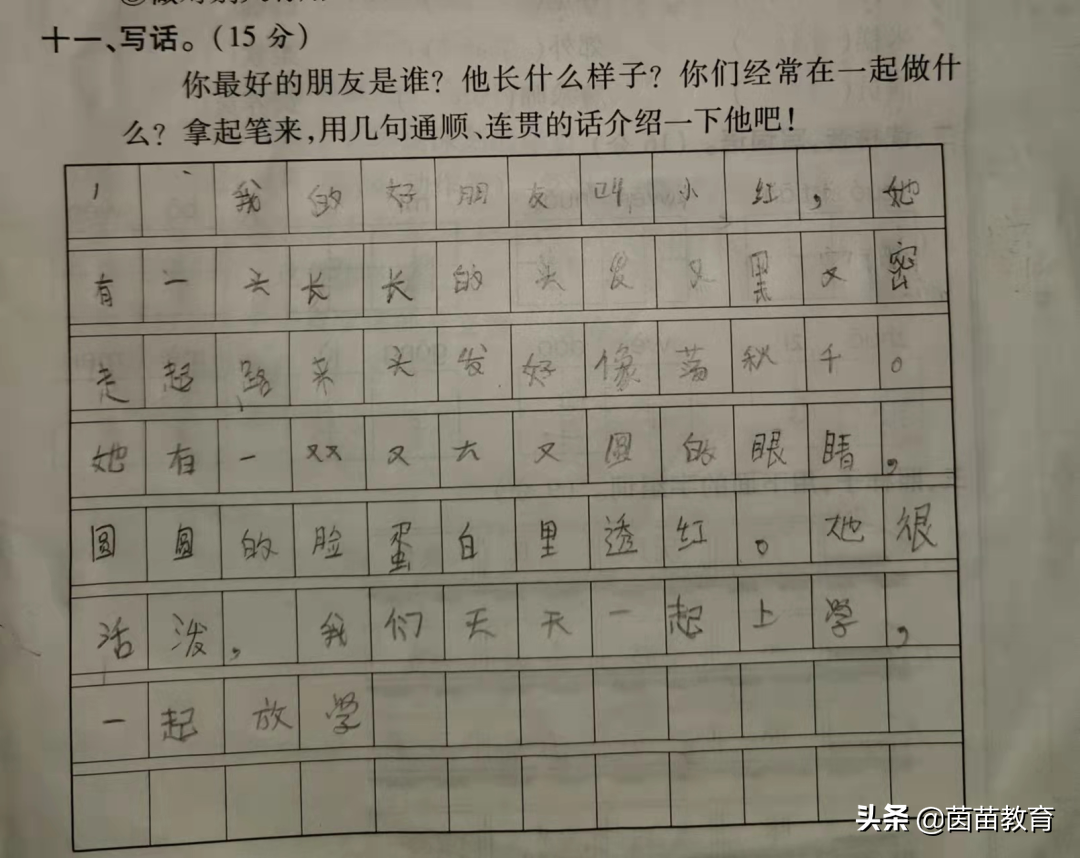 十一、写话。(15 分)
你最好的朋友是谁？他长什么样子？你们经常在一起做什
么？拿起笔来,用几句通顺、连贯的话介绍一下他吧！
我的好朋友叫小红，她
有一头长长的头发又黑又密
走起路来头发好像荡秋千。
她有一双又大又圆的眼睛，
圆圆的脸蛋白里透红。她很
活泼，我们天天一起上学，
一起放学
头条 @茵苗教育